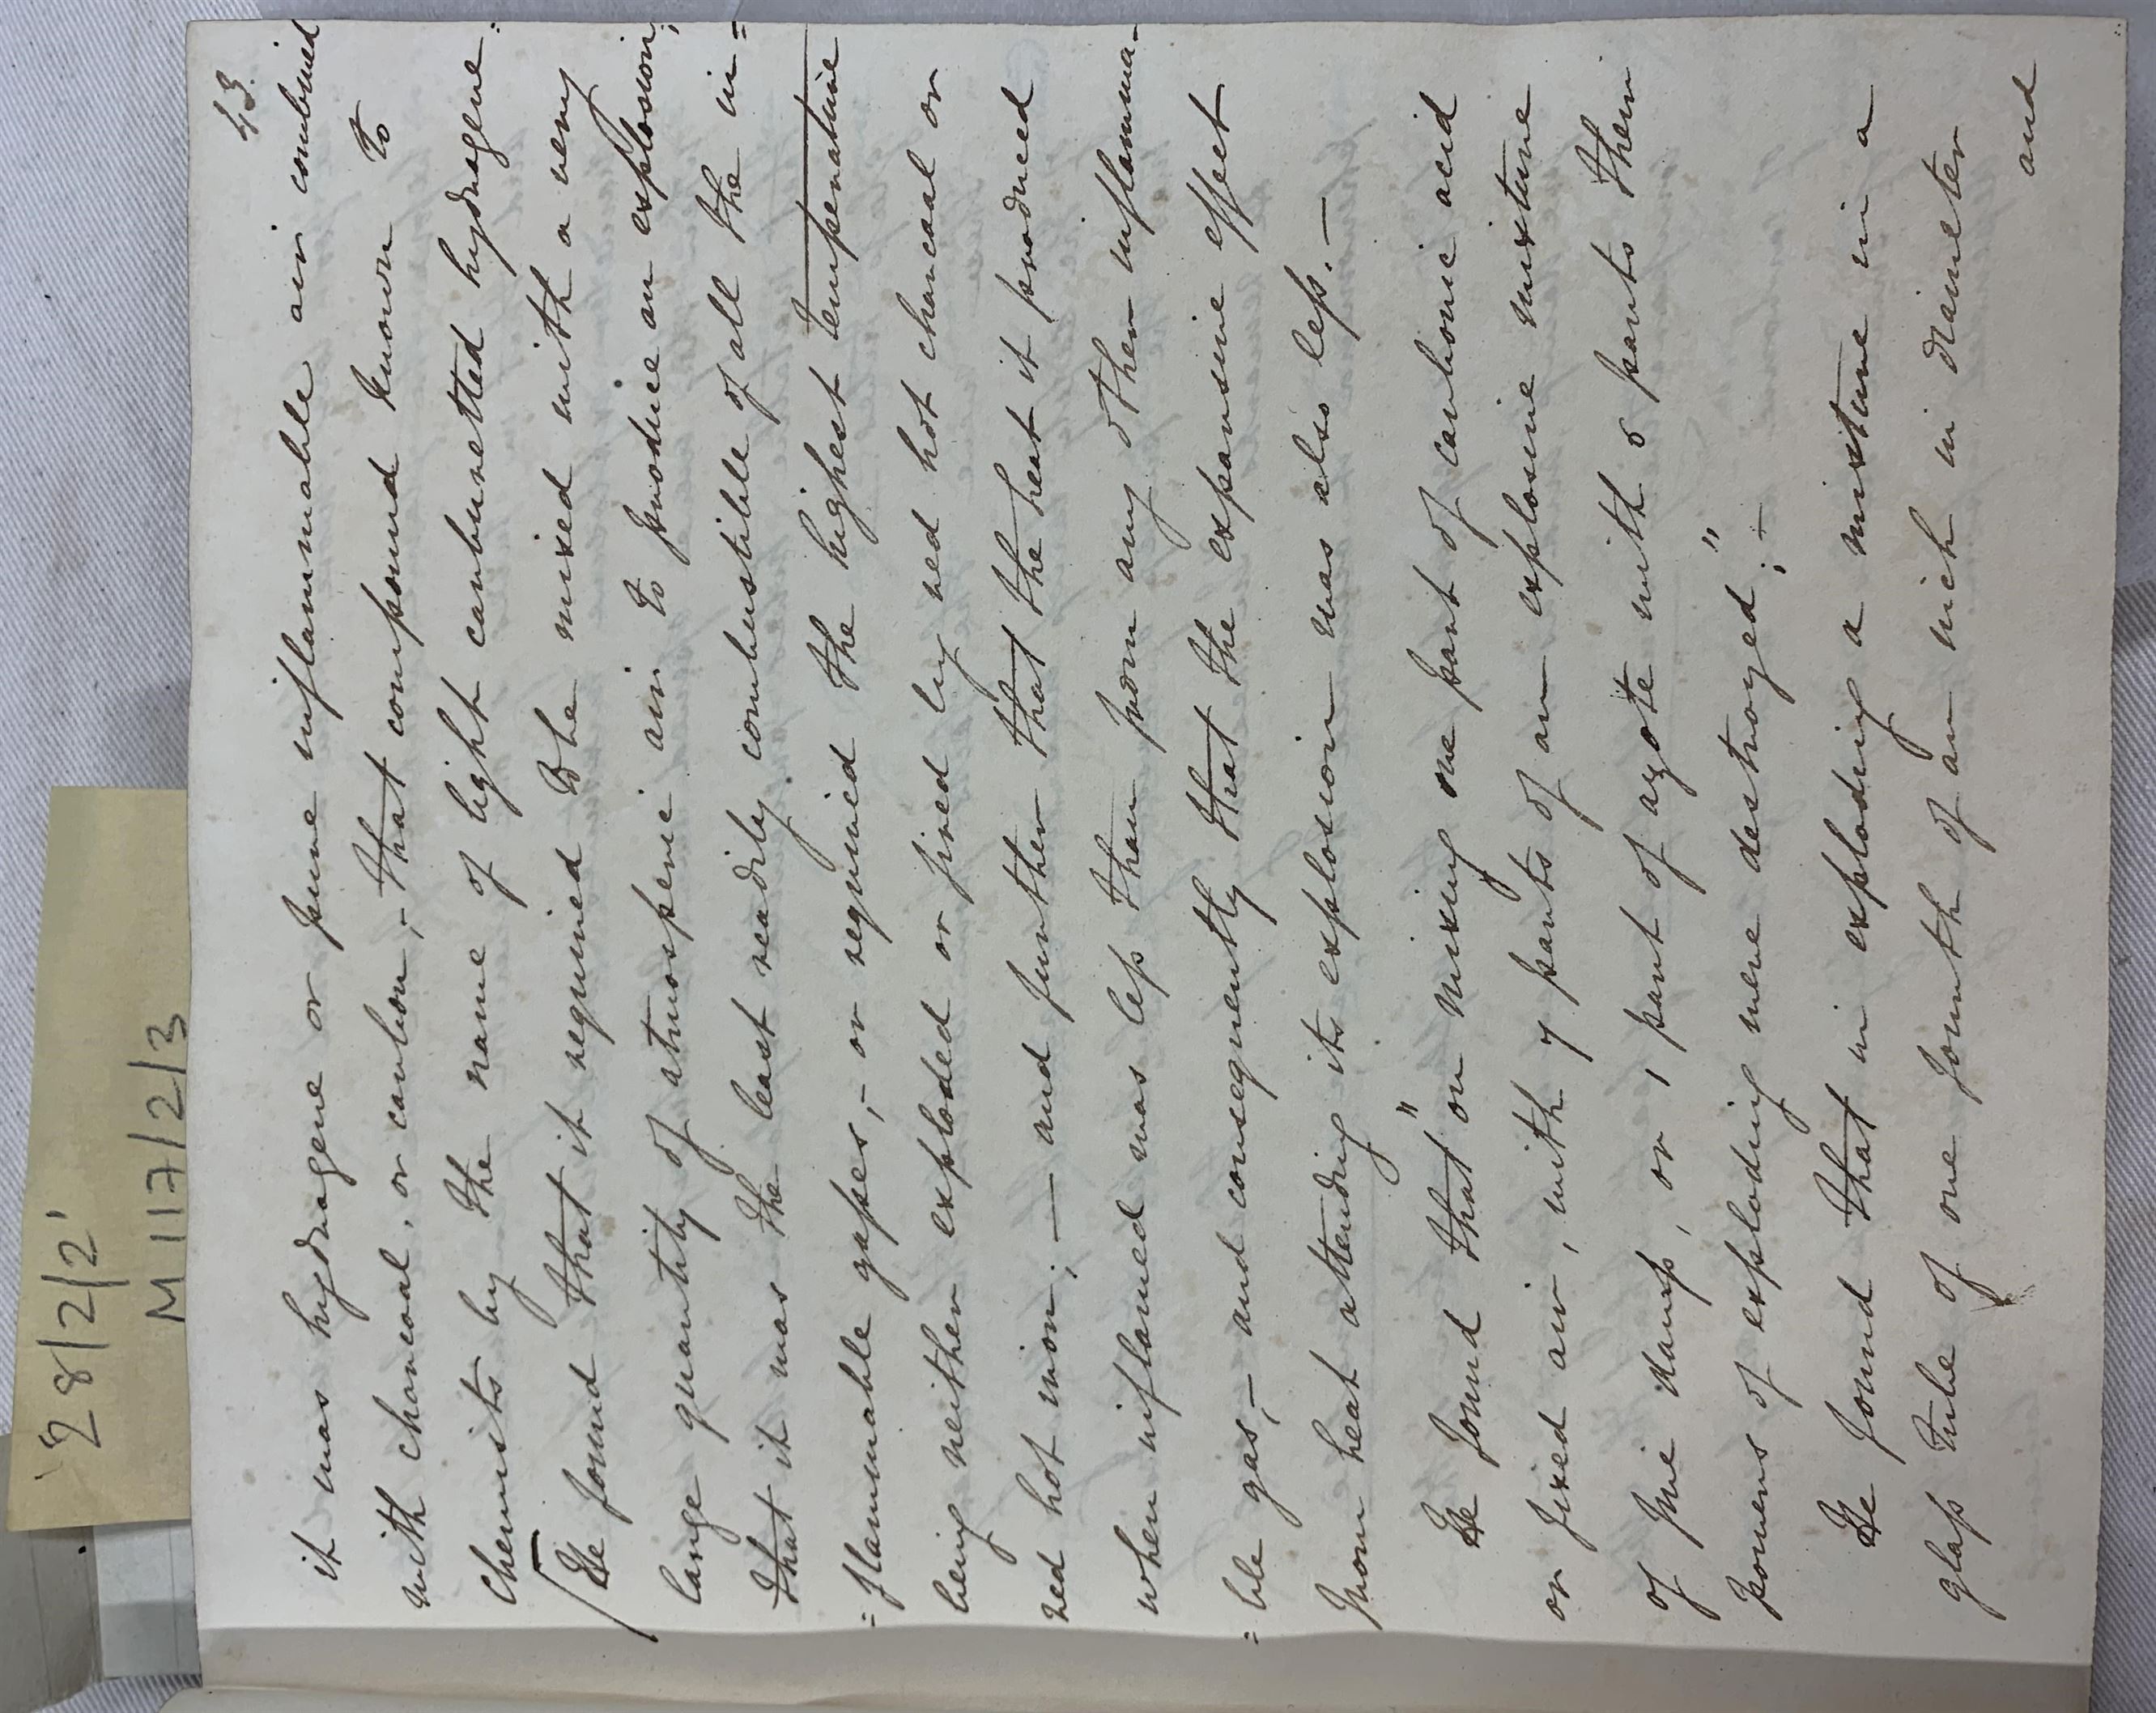 28/2/2'
M117/2/3
43.
it was hydragene or pure inflammable air combined
with charcoal, or carbon,- that compound known to
chemists by the name of light carburetted hydragene.
He found that it required to be mixed with a very
large quantity of atmosperic air to produce an explosion;
that it was the least readily combustible of all the in=
=flammable gasses,- or required the highest temperature
being neither exploded or fired by red hot charcoal or
red hot iron;- and further that the heat it produced
when inflamed was less than from any other inflamma-
=ble gas,- and consequently that the expansive effect
from heat attending its explosion was also less.-
He found that "on mixing one part of carbonic acid
or fixed air, with 7 parts of an explosive mixture
of fire damp, or 1 part of azote with 6 parts their
powers of exploding were destroyed;"-
He found that in exploding a mixture in a
glass tube of one fourth of an inch in diameter
and